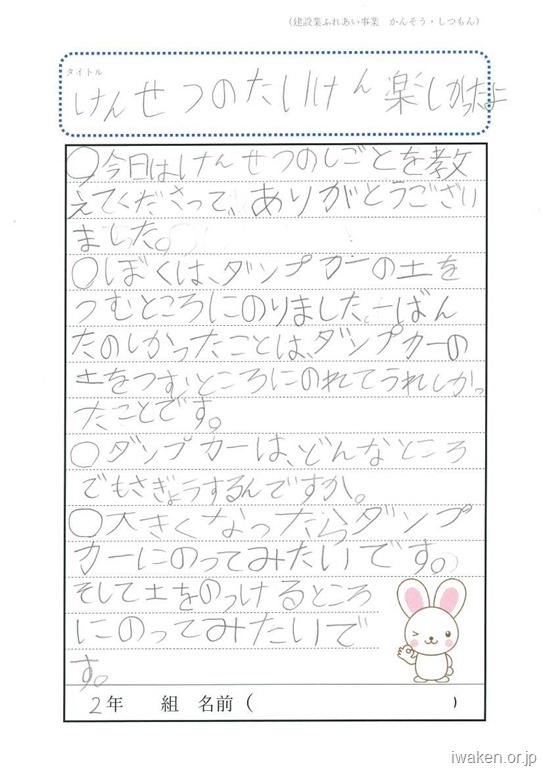 （建設業ふれあい事業　かんそう・しつもん）
タイトル
けんせつのたいけん 楽しかったよ
○今日はけんせつのしごとを教
えてくださって、ありがとうござい
ました。
○ぼくは、ダンプカーの土を
つむところにのりました。一ばん
たのしかったことは、ダンプカーの
土をつむところにのれてうれしかっ
たことです。
○ダンプカーは、どんなところ
でもさぎょうするんですか。
○大きくなったらダンプ
カーにのってみたいです。
そして土をのっけるところ
にのってみたいで
す。
2年　組　名前（　　）
iwaken.or.jp